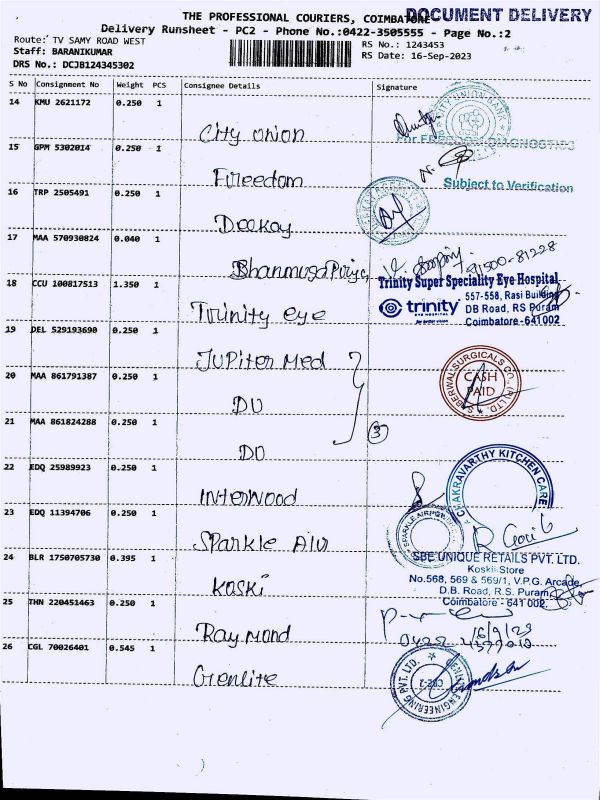 DOCUMENT DELIVERY
THE PROFESSIONAL COURIERS, COIMBATORE
Delivery Runsheet - PC2 - Phone No.:0422-3505555 - Page No.:2
Route: TV SAMY ROAD WEST
RS No.: 1243453
Staff: BARANIKUMAR
RS Date: 16-Sep-2023
DRS No.: DCJB124345302
S No Consignment No Weight PCS Consignee Details Signature
14 KMU 2621172 0.250 1
City Union
CITY UNION BANK
For FREEDOM DIAGNOSTICS
15 GPM 5302014 0.250 1
Freedom
Subject to Verification
16 TRP 2505491 0.250 1
Deekay
17 MAA 570930824 0.040 1
Bhanmugapriya
91500-81228
18 CCU 100817513 1.350 1
Trinity eye
Trinity Super Speciality Eye Hospital
557-558, Rasi Building
trinity
EYE HOSPITAL
DB Road, RS Puram
Coimbatore - 641 002
19 DEL 529193690 0.250 1
Jupiter Med
20 MAA 861791387 0.250 1
DU
SABERWAL SURGICALS CO. (P) LTD.
CASH
PAID
21 MAA 861824288 0.250 1
DO
3
22 EDQ 25989923 0.250 1
Interwood
CHAKRAVARTHY KITCHEN CARE
23 EDQ 11394706 0.250 1
Sparkle Air
SPARKLE AIRPORT
24 BLR 1750705730 0.395 1
Koski
SBE UNIQUE RETAILS PVT. LTD.
Koskii Store
No.568, 569 & 569/1, V.P.G. Arcade,
D.B. Road, R.S. Puram,
Coimbatore - 641 002.
25 THN 220451463 0.250 1
Raymond
16/9/23
0422 4377010
26 CGL 70026401 0.545 1
Genlite
ENGINEERING PVT. LTD.
CBE-2